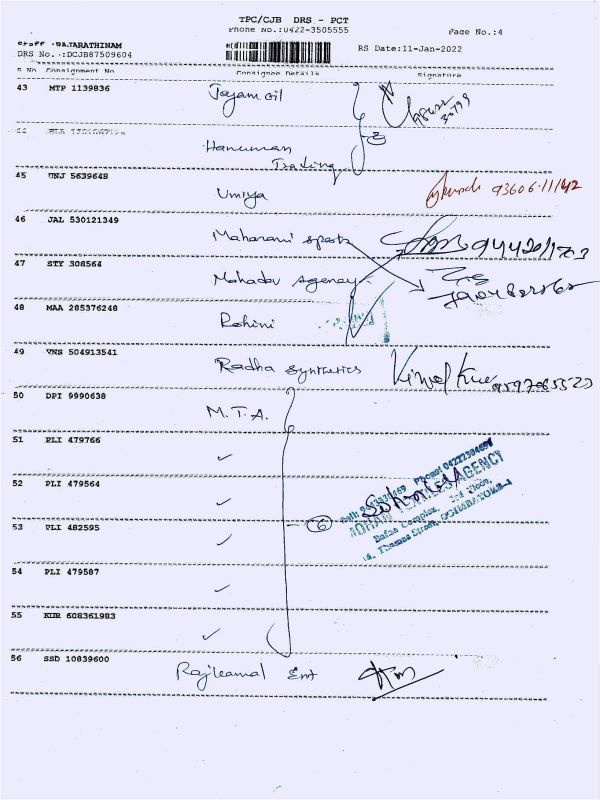 TPC/CJB DRS - PCT
Phone No.:0422-3505555
Page No.:4
Staff :RAJARATHINAM
DRS No.:DCJB87509604
RS Date:11-Jan-2022
S No Consignment No Consignee Details Signature
43 MTP 1139836 Jayam oil
44
Hanuman
Trading
45 UNJ 5639648
Umiya 93606 11142
46 JAL 530121349
Maharani sports
47 STY 308564
Mahadev Agency
48 MAA 285376248
Rohini
49 VNS 504913541
Radha Synthetics
50 DPI 9990638
M.T.A.
51 PLI 479766
52 PLI 479564
6
AGENCY
53 PLI 482595
Complex, 2nd Floor,
Thomas Street, COIMBATORE-1
54 PLI 479587
55 KUR 608361983
56 SSD 10839600
Rajkamal Ent